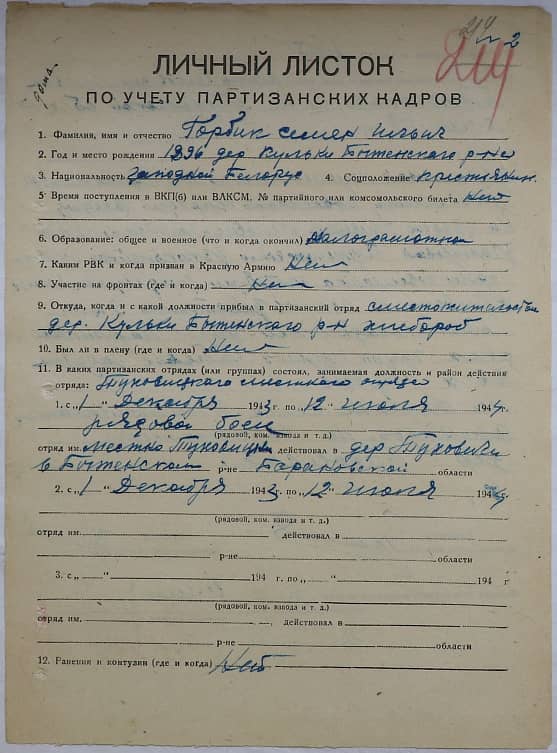 214
2
214
дома.
ЛИЧНЫЙ ЛИСТОК
ПО УЧЕТУ ПАРТИЗАНСКИХ КАДРОВ
1. Фамилия, имя и отчество Горбик Семен Ильич
2. Год и место рождения 1896 дер Кульки Бытенского р-на
3. Национальность западной Белорус 4. Соцположение крестьянин.
5. Время поступления в ВКП(б) или ВЛКСМ, № партийного или комсомольского билета Нет
6. Образование: общее и военное (что и когда окончил) малограмотный
7. Каким РВК и когда призван в Красную Армию Нет
8. Участие на фронтах (где и когда) Нет
9. Откуда, когда и с какой должности прибыл в партизанский отряд сместожительства
дер. Кульки Бытенского р-н хлебороб
10. Был ли в плену (где и когда) Нет
11. В каких партизанских отрядах (или группах) состоял, занимаемая должность и район действия
отряда: Туховицкого местного отряда
1. с „1“ Декабря 1943 г. по „12“ июля 1944 г.
рядовой боец
(рядовой, ком. взвода и т. д.)
отряд им. местно Туховицкий действовал в дер Туховичи
в Бытенском р-не Барановской области
2. с „1“ Декабря 1943 г. по „12“ июля 1944 г.
(рядовой, ком. взвода и т. д.)
отряд им. действовал в
р-не области
3. с „ “ 194 г. по „ “ 194 г
(рядовой, ком. взвода и т. д.)
отряд им. , действовал в
р-не области
12. Ранения и контузии (где и когда) Нет